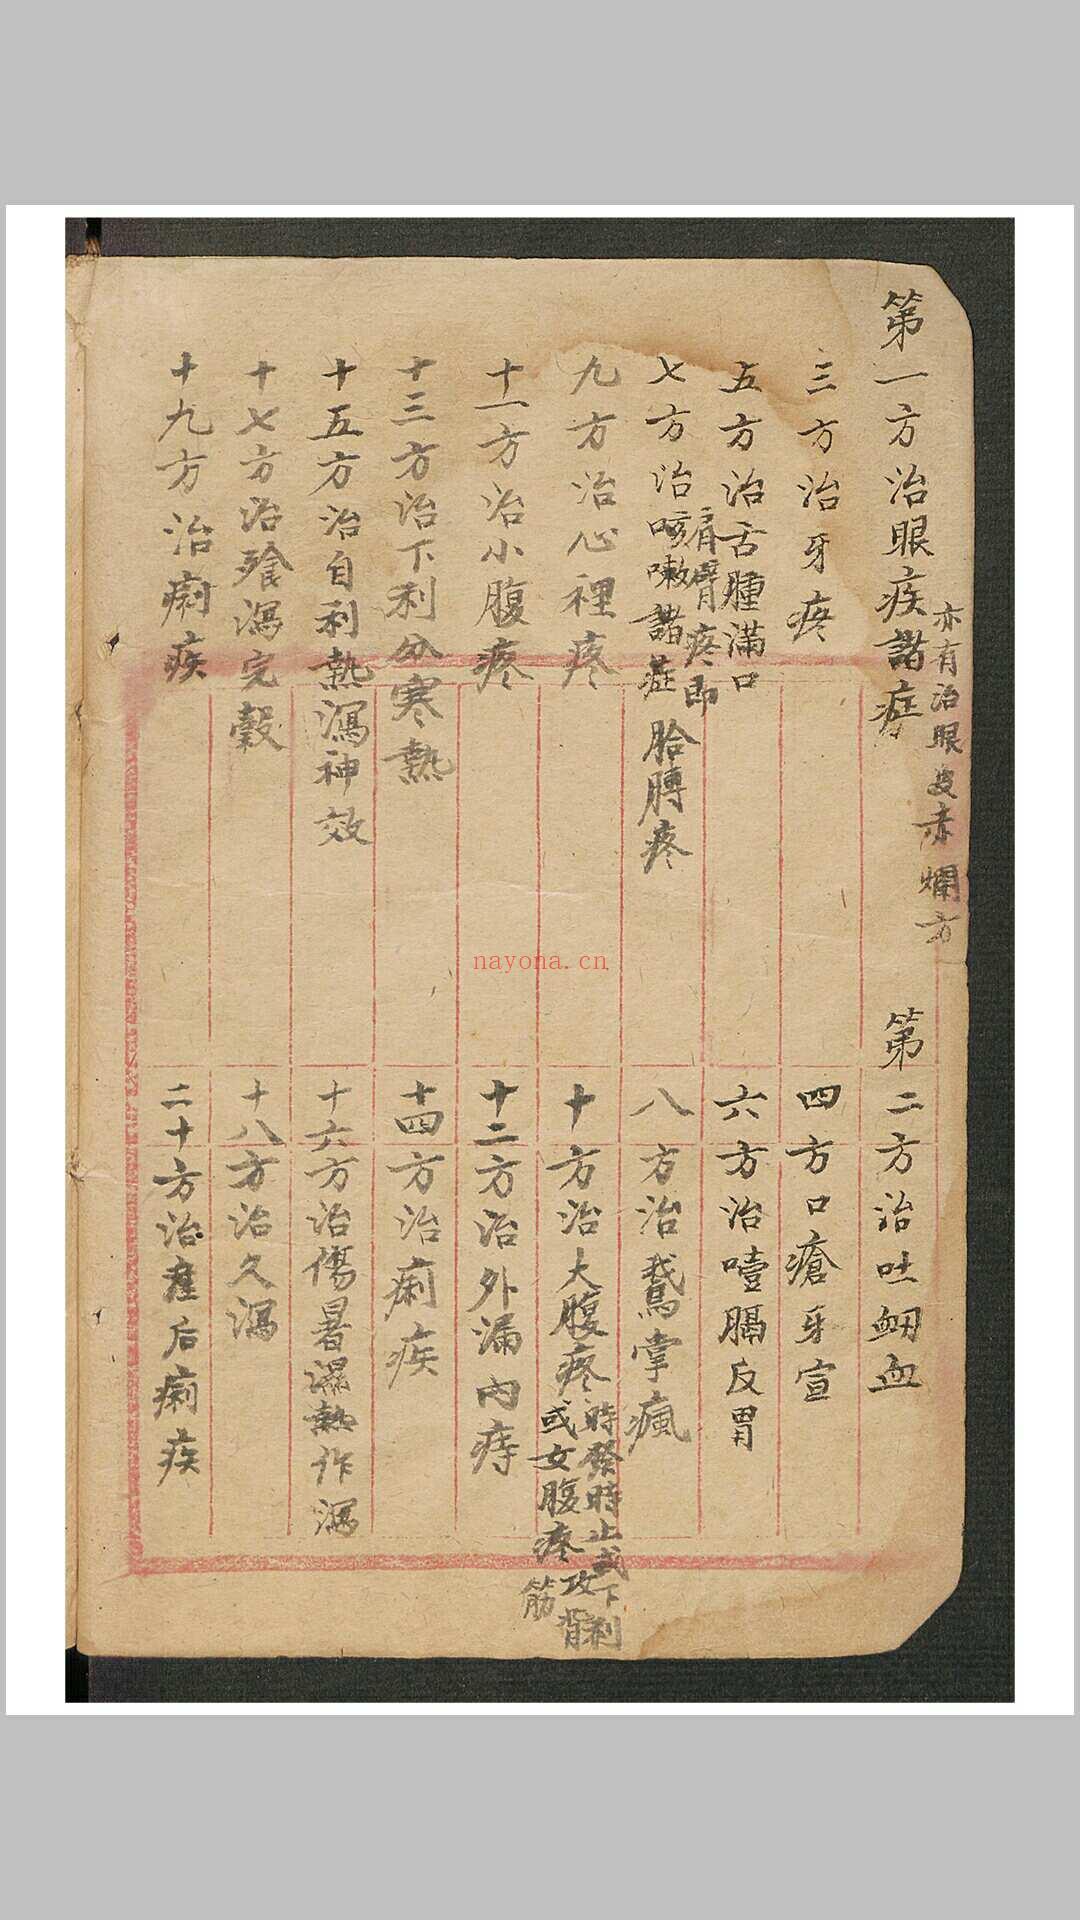 第一方治眼疾諸症
亦有治眼皮赤爛方
第二方治吐衂血
三方治牙疼
四方口瘡牙宣
五方治舌腫滿口
六方治噎膈反胃
七方治咳嗽諸症
肩臂疼即
胳膊疼
八方治鵝掌瘋
九方治心裡疼
十方治大腹疼
時發時止或下利
或女腹疼攻背
筋
十一方治小腹疼
十二方治外漏內痔
十三方治下利分寒熱
十四方治痢疾
十五方治自利熱瀉神效
十六方治傷暑濕熱作瀉
十七方治飱瀉完穀
十八方治久瀉
十九方治痢疾
二十方治產后痢疾
nayona.cn